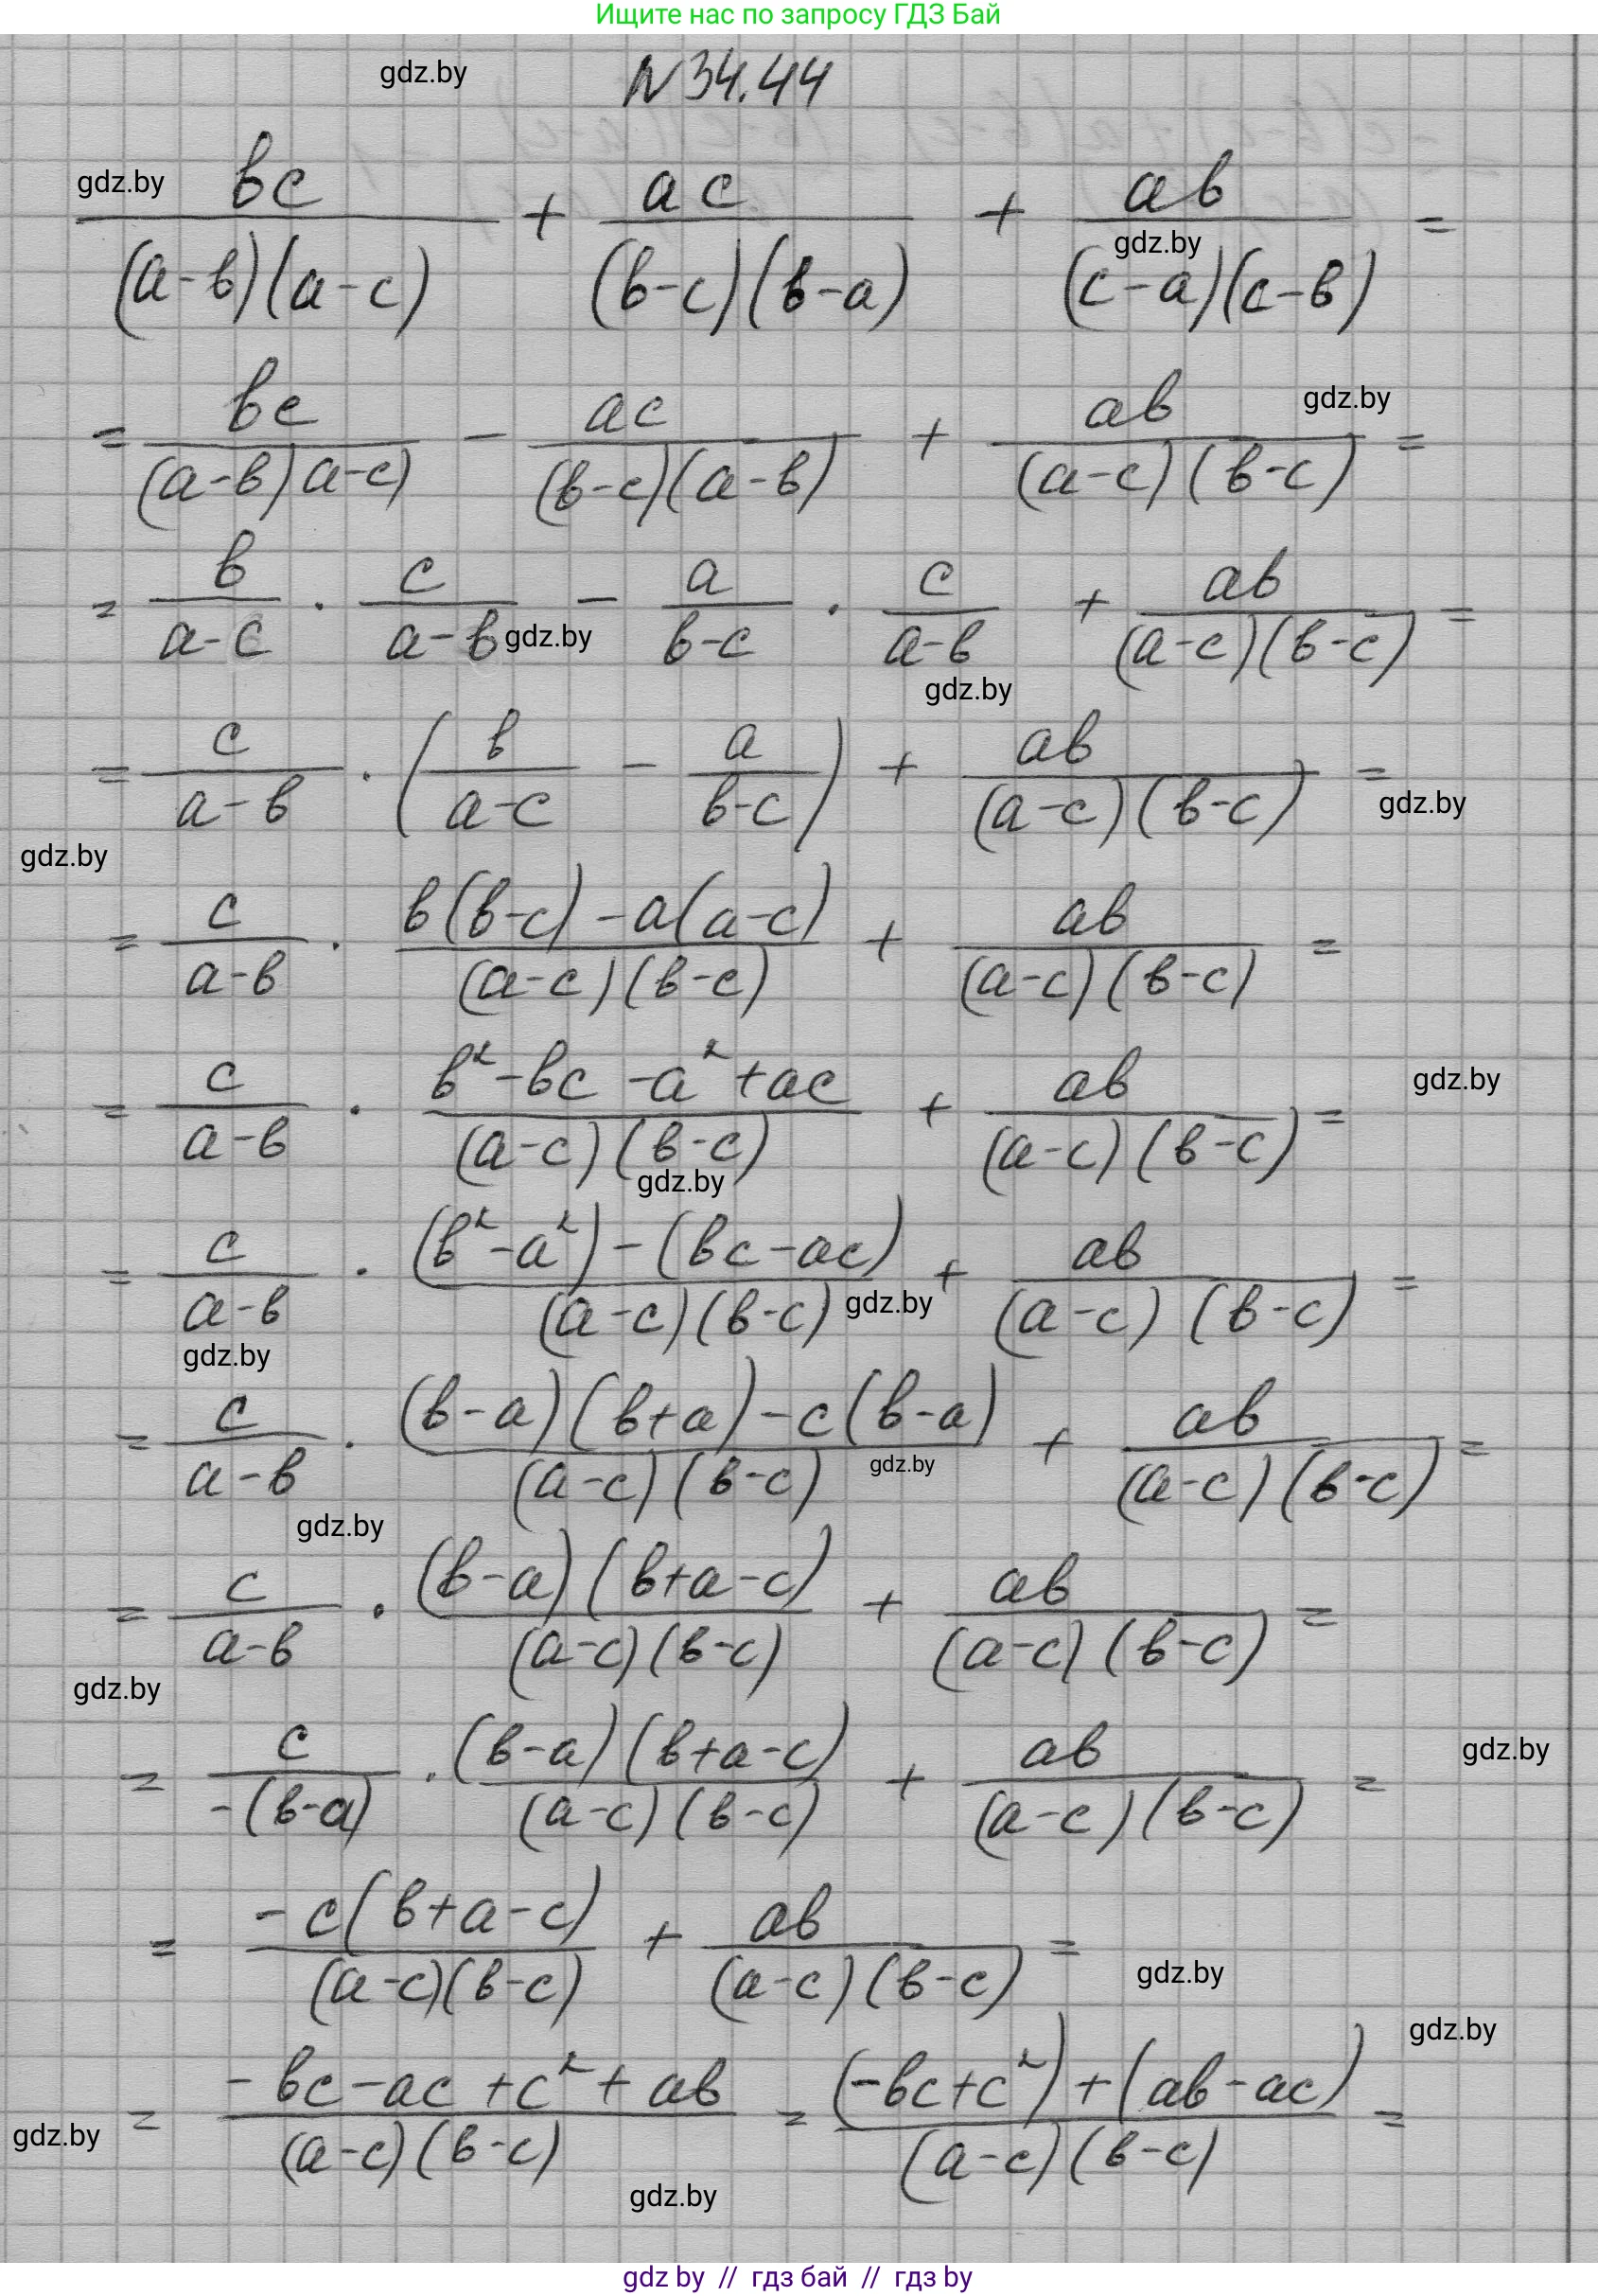 Ищите нас по запросу ГДЗ Бай
gdz.by N 34.44
gdz.by bc/((a-b)(a-c)) + ac/((b-c)(b-a)) + ab/((c-a)(c-b)) = gdz.by
= bc/((a-b)a-c)) - ac/((b-c)(a-b)) + ab/((a-c)(b-c)) = gdz.by
= b/(a-c) · c/(a-b) - a/(b-c) · c/(a-b) + ab/((a-c)(b-c)) = gdz.by gdz.by
= c/(a-b) · (b/(a-c) - a/(b-c)) + ab/((a-c)(b-c)) = gdz.by
gdz.by
= c/(a-b) · (b(b-c)-a(a-c))/((a-c)(b-c)) + ab/((a-c)(b-c)) =
= c/(a-b) · (b²-bc-a²+ac)/((a-c)(b-c)) + ab/((a-c)(b-c)) = gdz.by
gdz.by
= c/(a-b) · ((b²-a²)-(bc-ac))/((a-c)(b-c)) + ab/((a-c)(b-c)) = gdz.by
gdz.by
= c/(a-b) · ((b-a)(b+a)-c(b-a))/((a-c)(b-c)) + ab/((a-c)(b-c)) = gdz.by
gdz.by
= c/(a-b) · ((b-a)(b+a-c))/((a-c)(b-c)) + ab/((a-c)(b-c)) =
gdz.by
= c/(-(b-a)) · ((b-a)(b+a-c))/((a-c)(b-c)) + ab/((a-c)(b-c)) = gdz.by
= (-c(b+a-c))/((a-c)(b-c)) + ab/((a-c)(b-c)) = gdz.by
gdz.by
= (-bc-ac+c²+ab)/((a-c)(b-c)) = ((-bc+c²)+(ab-ac))/((a-c)(b-c)) =
gdz.by
gdz.by
gdz by // гдз бай // гдз by